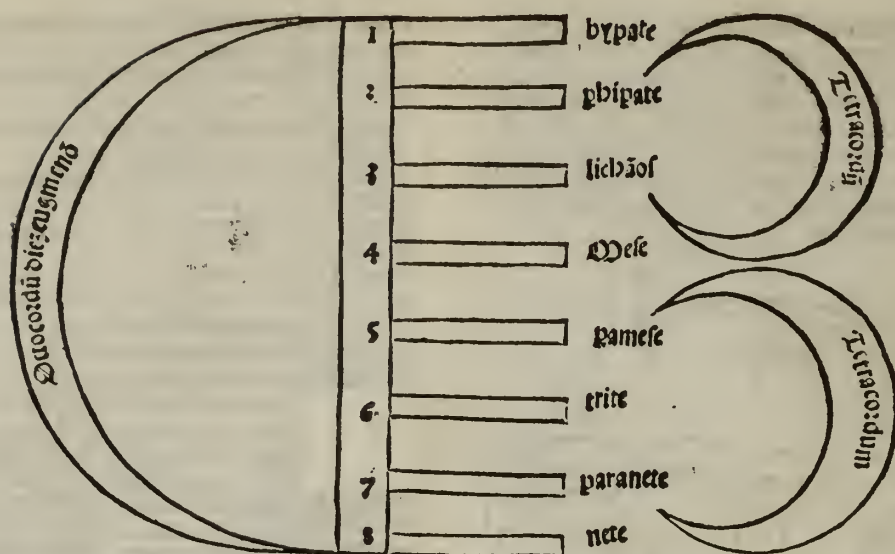 Octocordū diezeugmenō
1 hypate
2 phipate
3 lichāos
4 Mese
5 pamese
6 trite
7 paranete
8 nete
Tetracordū
Tetracordum